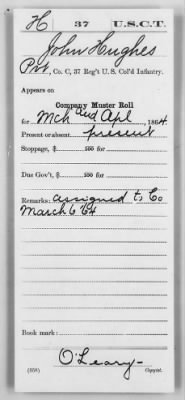 H 37 U.S.C.T.
John Hughes
Pvt, Co. C, 37 Reg't U. S. Col'd Infantry.
Appears on
Company Muster Roll
for Mch and Apl, 1864
Present or absent, present
Stoppage, $ 100 for
Due Gov't, $ 100 for
Remarks: assigned to Co
March 6 '64
Book mark:
O'Leary
(358) Copyist.